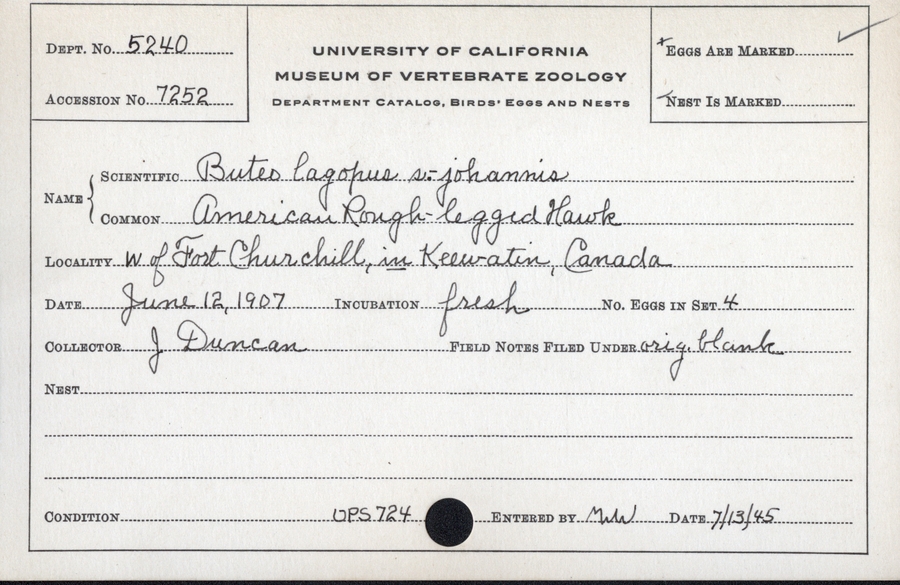 DEPT. NO. 5240
ACCESSION NO. 7252
UNIVERSITY OF CALIFORNIA
MUSEUM OF VERTEBRATE ZOOLOGY
DEPARTMENT CATALOG, BIRDS' EGGS AND NESTS
EGGS ARE MARKED
NEST IS MARKED
NAME
SCIENTIFIC Buteo lagopus s.-johannis
COMMON American Rough-legged Hawk
LOCALITY W of Fort Churchill, in Keewatin, Canada
DATE June 12, 1907 INCUBATION fresh NO. EGGS IN SET 4
COLLECTOR J Duncan FIELD NOTES FILED UNDER orig. blank
NEST
CONDITION OPS 724 ENTERED BY DATE 7/13/45